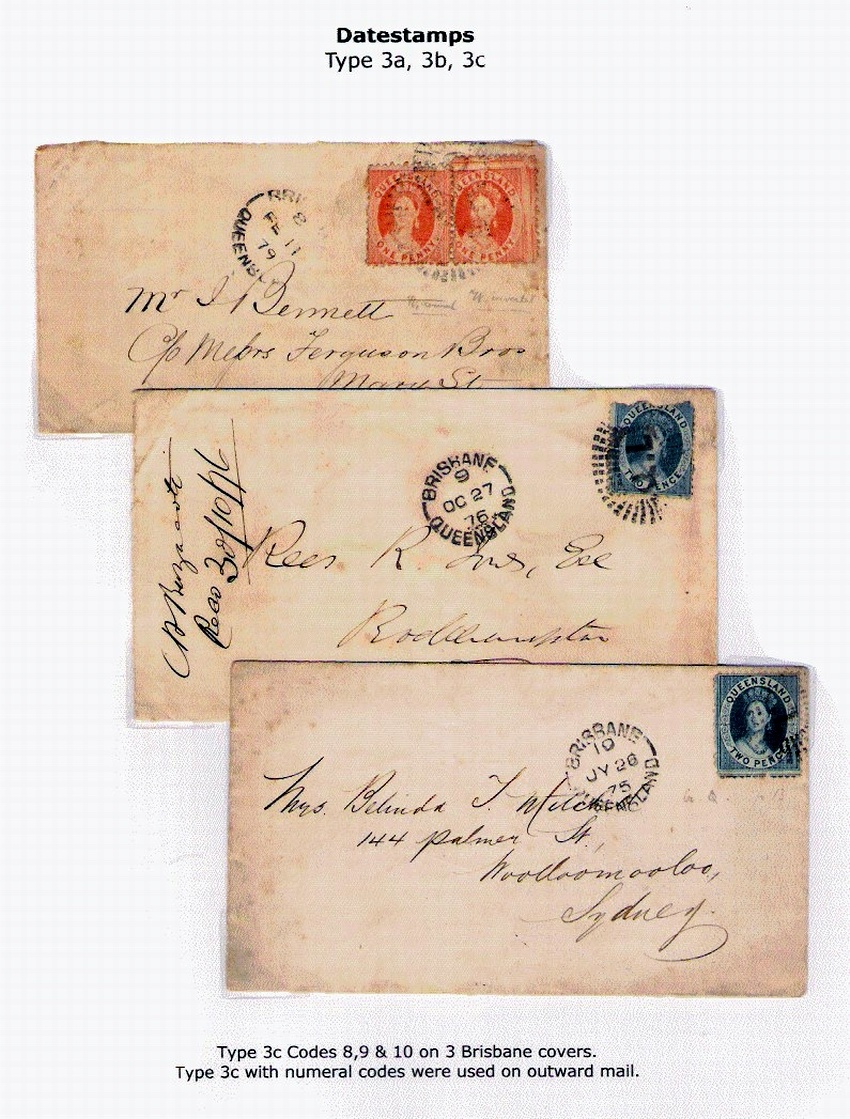 Datestamps
Type 3a, 3b, 3c
QUEENSLAND
ONE PENNY
QUEENSLAND
ONE PENNY
BRI
8
FE 11
79
QUEENSL
Mr J Bennett
C/o Messrs Ferguson Bros
Mary St
QUEENSLAND
TWO PENCE
BRISBANE
9
OC 27
76
QUEENSLAND
Rees R. Esq
Rockhampton
QUEENSLAND
TWO PENCE
BRISBANE
10
JY 26
75
QUEENSLAND
Mrs. Belinda T. Mitchell
144 Palmer St.,
Woolloomooloo,
Sydney.
Type 3c Codes 8,9 & 10 on 3 Brisbane covers.
Type 3c with numeral codes were used on outward mail.